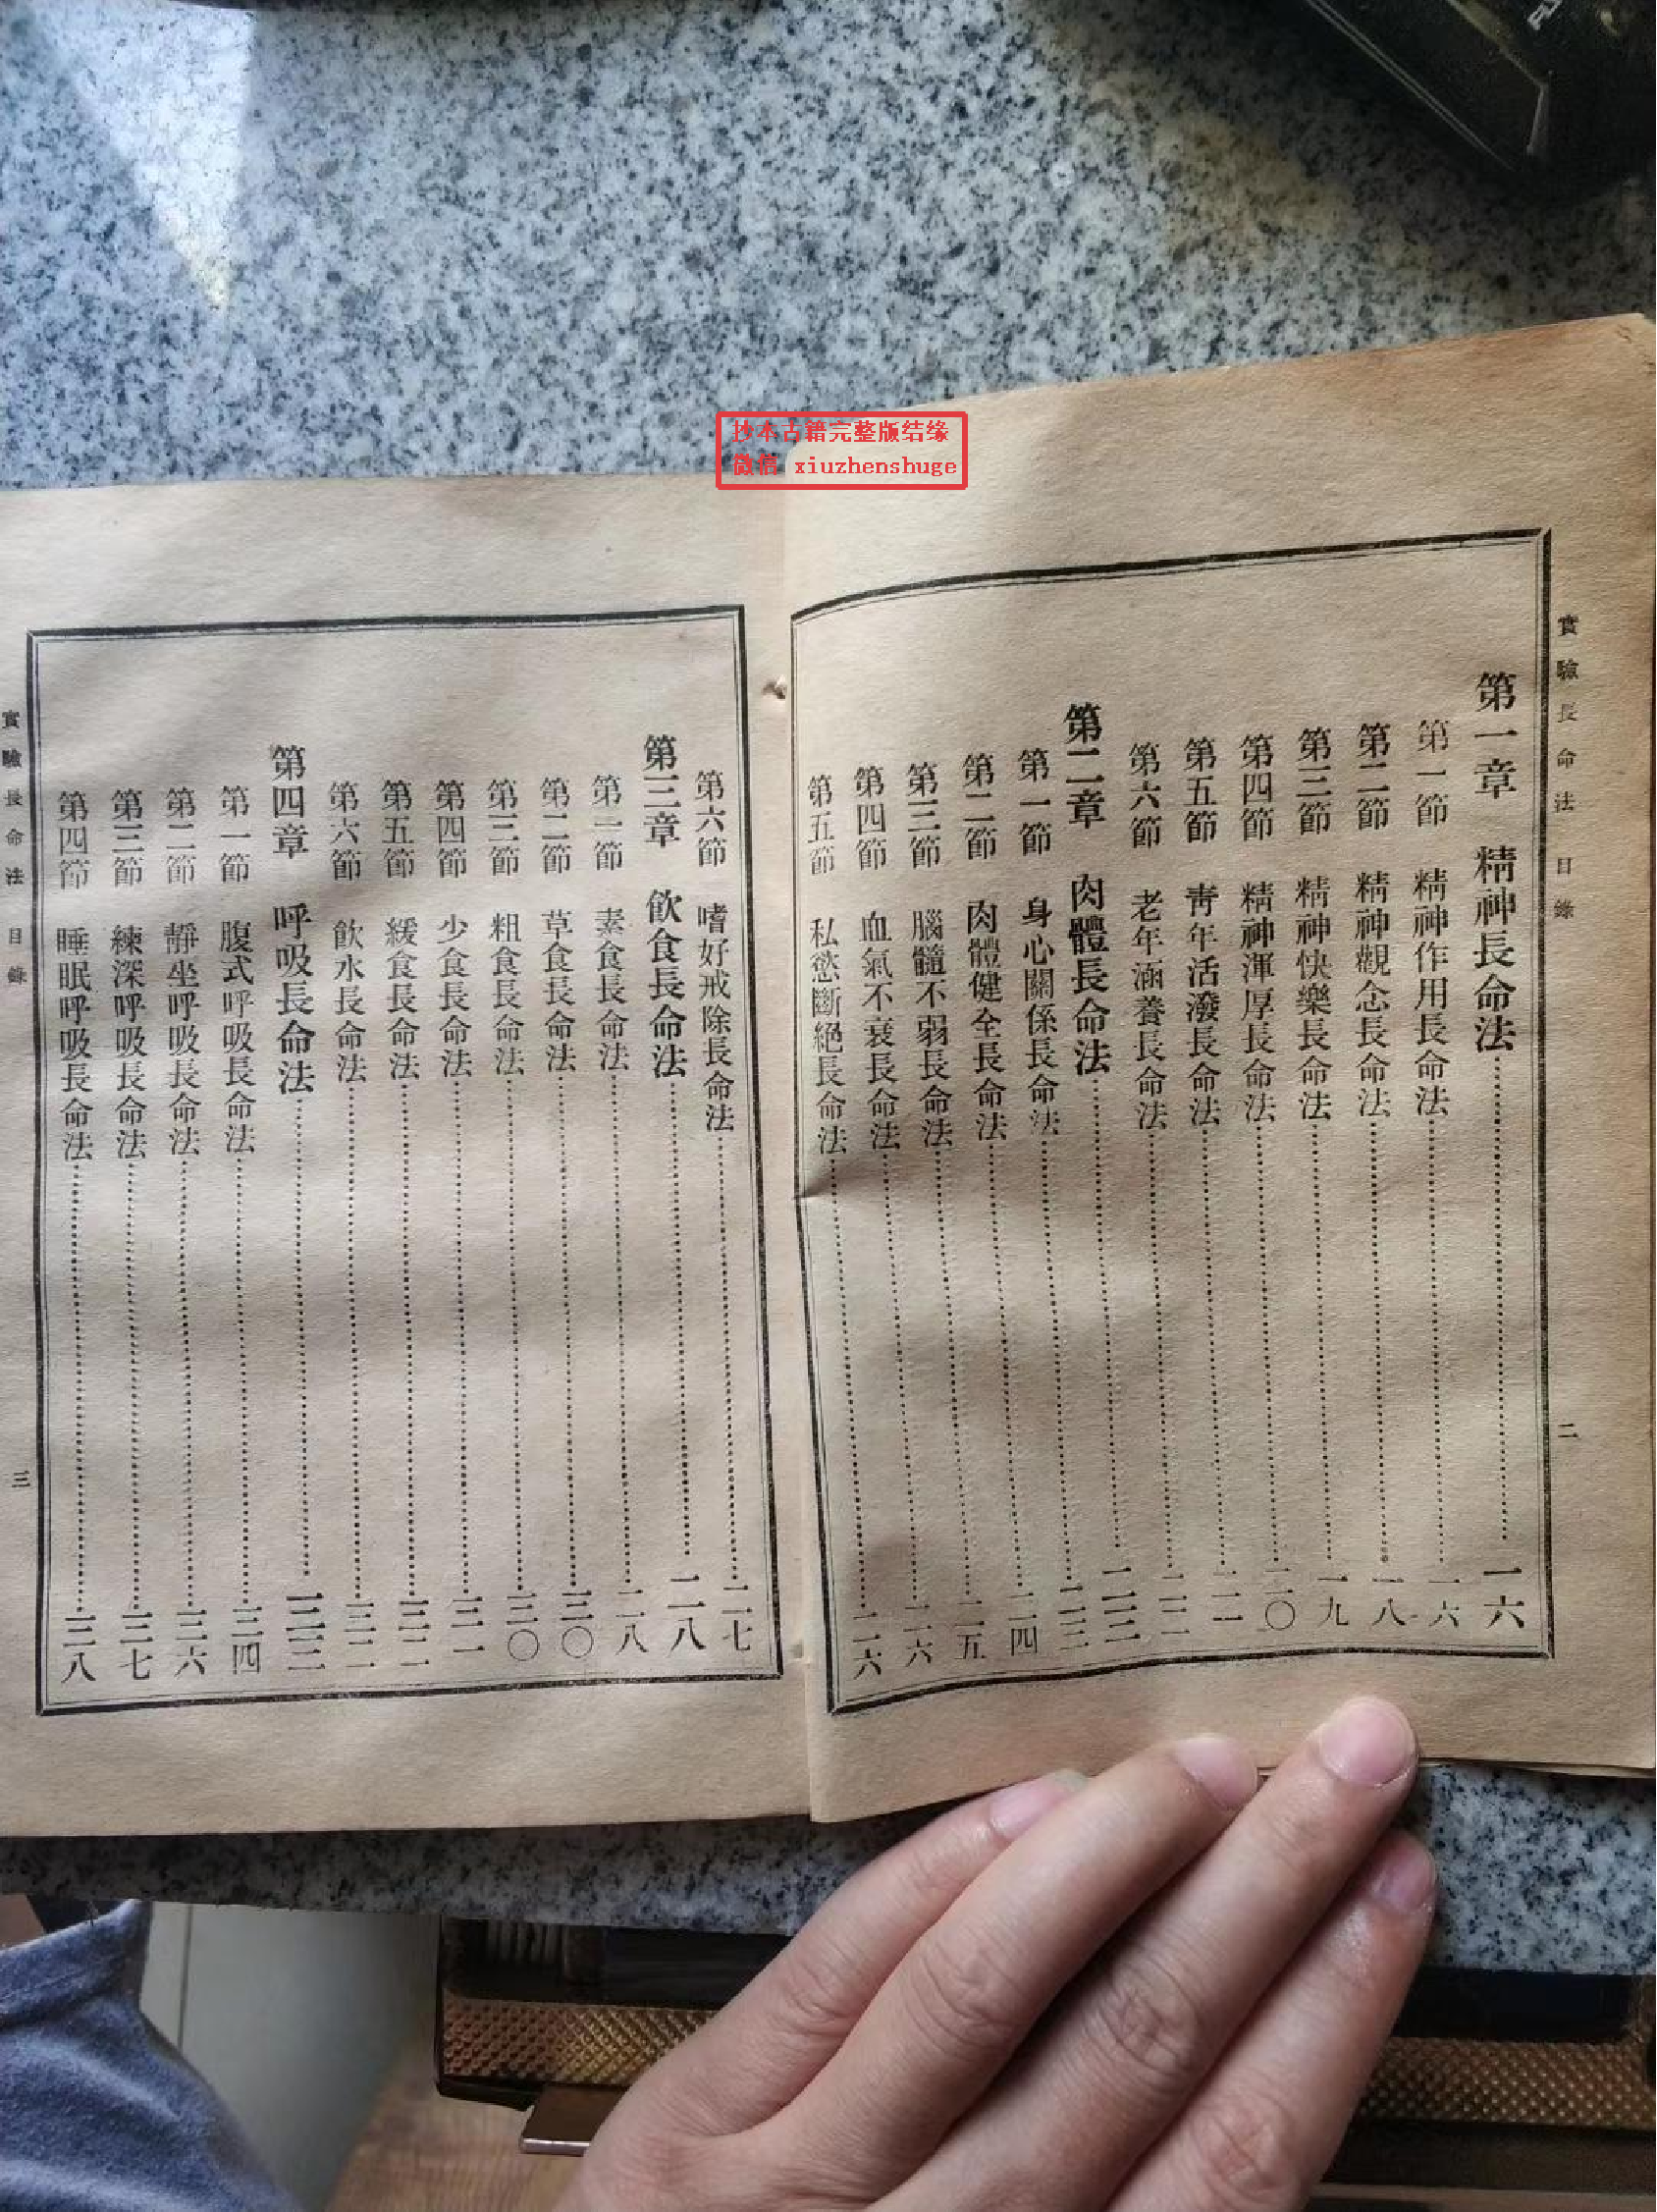 抄本古籍完整版结缘
微信 xiuzhenshuge
實驗長命法 目錄 二
第一章 精神長命法……一六
第一節 精神作用長命法……一六
第二節 精神觀念長命法……一八
第三節 精神快樂長命法……一九
第四節 精神渾厚長命法……二〇
第五節 靑年活潑長命法……二一
第六節 老年涵養長命法……二二
第二章 肉體長命法……二三
第一節 身心關係長命法……二三
第二節 肉體健全長命法……二四
第三節 腦髓不弱長命法……二五
第四節 血氣不衰長命法……二六
第五節 私慾斷絕長命法……二六
第六節 嗜好戒除長命法……二七
第三章 飲食長命法……二八
第一節 素食長命法……二八
第二節 草食長命法……三〇
第三節 粗食長命法……三〇
第四節 少食長命法……三一
第五節 緩食長命法……三二
第六節 飲水長命法……三二
第四章 呼吸長命法……三三
第一節 腹式呼吸長命法……三四
第二節 靜坐呼吸長命法……三六
第三節 練深呼吸長命法……三七
第四節 睡眠呼吸長命法……三八
實驗長命法 目錄 三